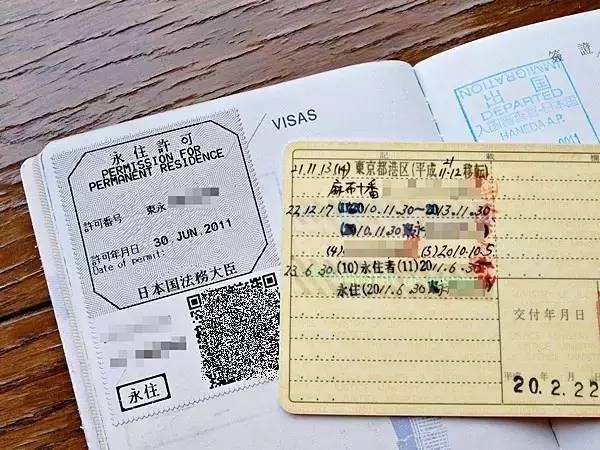 VISAS
簽證
永住許可
PERMISSION FOR
PERMANENT RESIDENCE
許可番号 東永
許可年月日 30 JUN. 2011
Date of Permit:
日本国法務大臣
永住
IMMIGRATION
出国
DEPARTED
HANEDA A.P.
記 載 欄
21.11.13(14)東京都港区(平成21.11.12移転)
麻布十番
22.12.17 2010.11.30~2013.11.30
2010.11.30東永
(4) (5)2010.10.5
23.6.30(10)永住者(11)2011.6.30
永住(2011.6.30東
交付年月日
平成 年 月 日
20.2.22